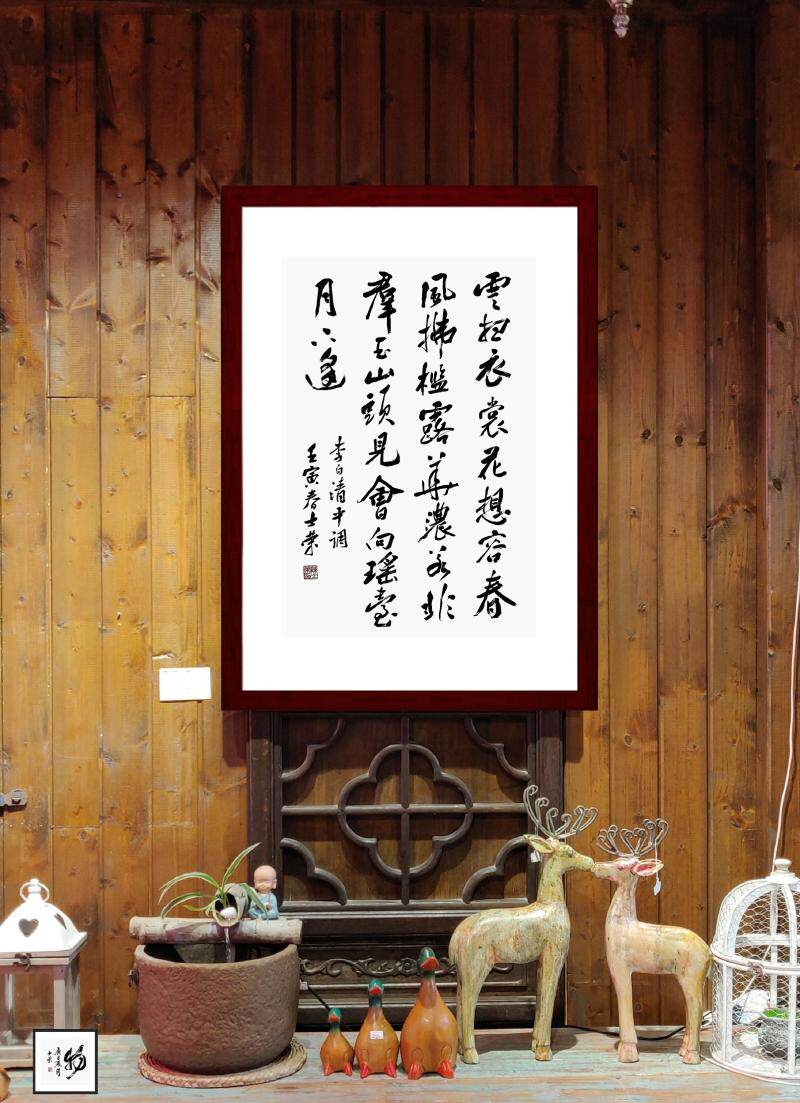 雲想衣裳花想容春
風拂檻露華濃若非
羣玉山頭見會向瑶臺
月下逢
李白清平调
壬寅春士荣